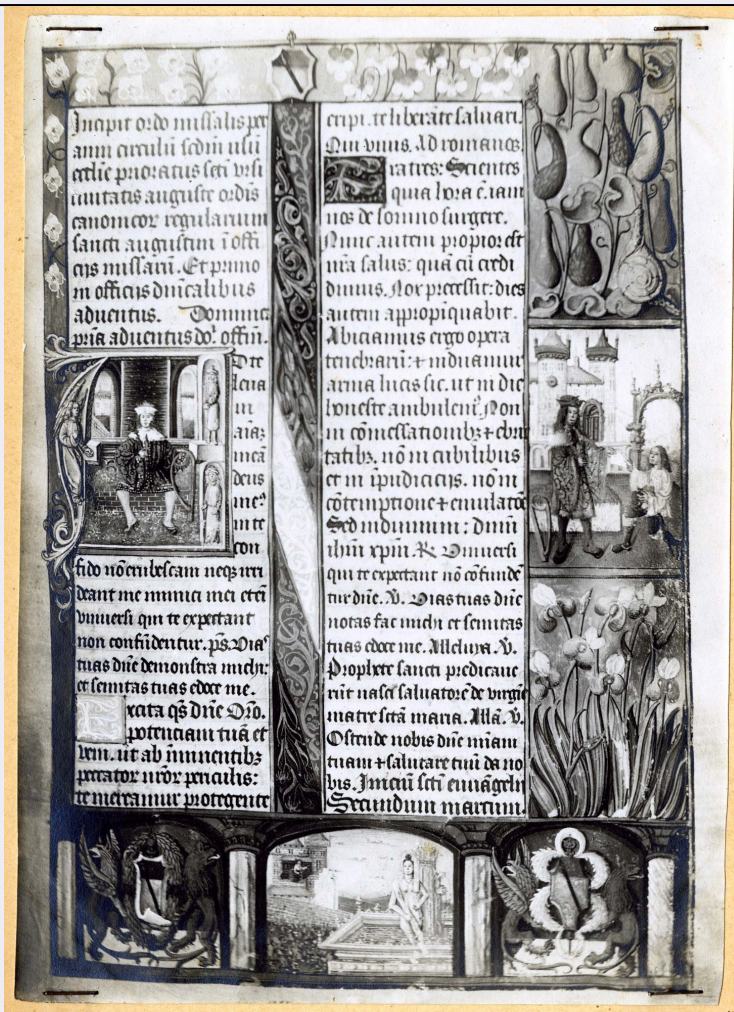 Incipit ordo missalis per
anni circulū scdm usū
ecclīe prioratus scti vrsi
ciuitatis auguste ordis
canonicor regularium
sancti augustini ī offi
cijs missarū. Et primo
in officijs dnicalibus
aduentus. Dominic
pria aduentus do⁠ꝰ offm.
D te
leua
ui
aīaʒ
meā
deus
meꝰ
in te
con
fido nō erubescam neqʒ irri
deant me inimici mei eteī
vniuersi qui te expectant
non confūdentur. ps. Vias
tuas dne demonstra michi:
et semitas tuas edoce me.
Excita qs dne Oro.
potenciam tuā et
veni. ut ab īminentibʒ
peccator nror periculis:
te mereamur protegente
eripi. te liberāte saluari.
Qui viuis. Ad romanos.
Fratres: Scientes
quia hora ē. iam
nos de somno surgere.
Nunc autem propior est
nra salus: quā cū credi
dimus. Nox precessit: dies
autem appropiquabit.
Abiciamus ergo opera
tenebrarū: + induamur
arma lucis sic. ut in die
honeste ambulem⁹. Non
in cōmessationibʒ + ebrie
tatibʒ. nō in cubilibus
et in īpudicicijs. nō in
cōtemptione + emulatōe
Sed induimini: dnm
ihm xpm. R. Vniuersi
qui te expectant nō cōfunde
tur dne. V. Vias tuas dne
notas fac michi et semitas
tuas edoce me. Alleluya. V.
Prophete sancti predicaue
rūt nasci saluatorē de virgie
matre sctā maria. Allā. V.
Ostende nobis dne miam
tuam + salutare tuū da no
bis. Iniciū scti euuāgelii
Secundum marcum.